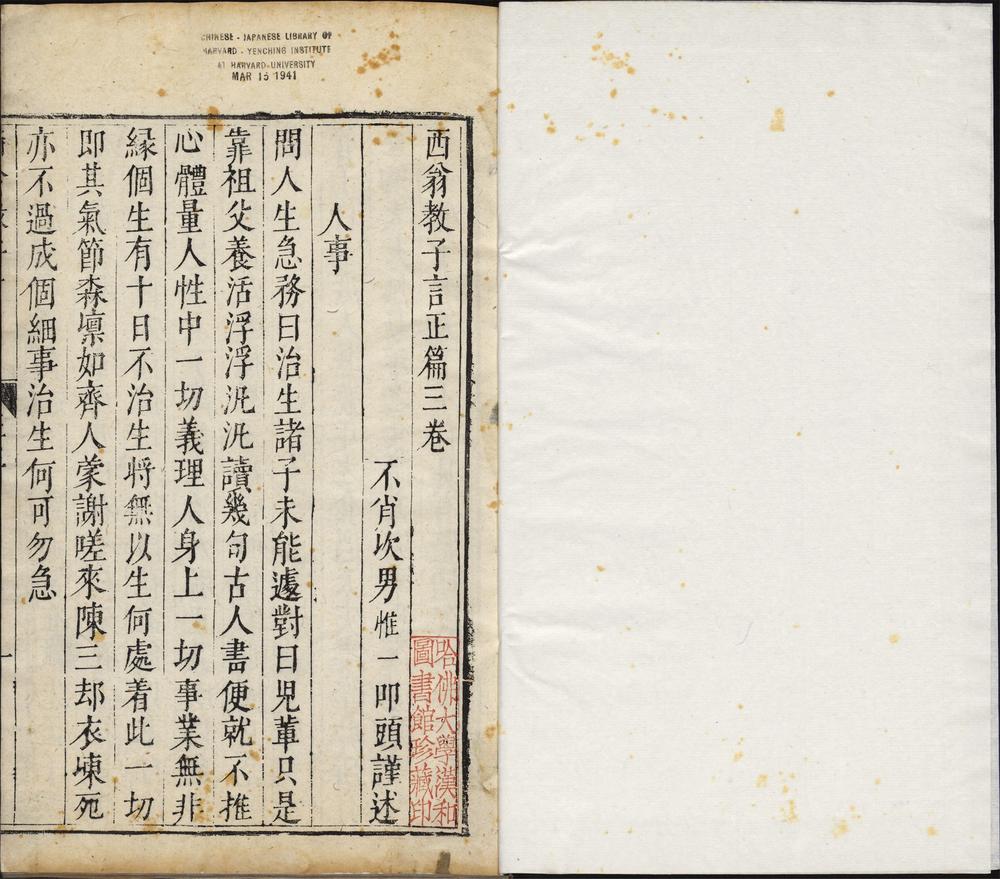 CHINESE - JAPANESE LIBRARY OF
HARVARD - YENCHING INSTITUTE
AT HARVARD UNIVERSITY
MAR 15 1941
西翁教子言正篇三卷
不肖坎男惟一叩頭謹述
人事
問人生急務曰治生諸子未能遽對曰児輩只是
靠祖父養活浮浮汎汎讀幾句古人書便就不推
心體量人性中一切義理人身上一切事業無非
縁個生有十日不治生将無以生何處着此一切
即其氣節森凛如齊人蒙謝嗟來陳三却衣凍死
亦不過成個細事治生何可勿急
哈佛大學漢和
圖書館珍藏印